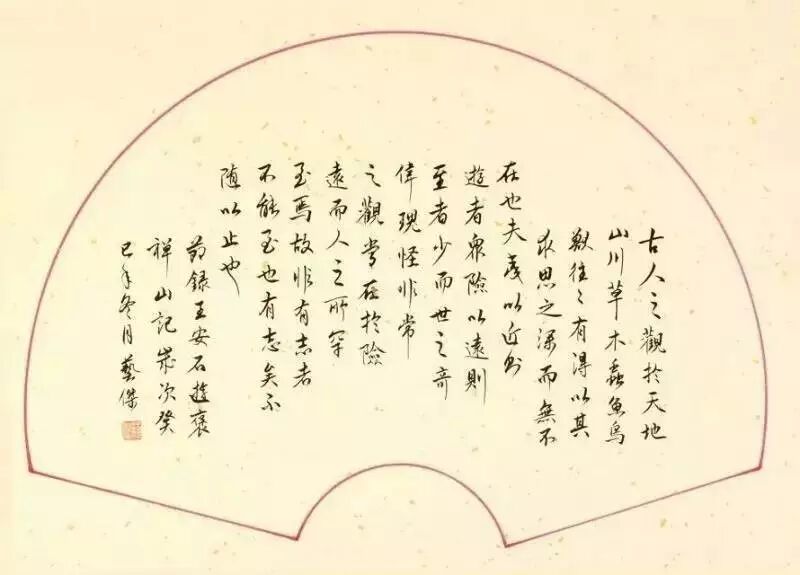 古人之觀於天地
山川草木蟲魚鳥
獸往々有得以其
求思之深而無不
在也夫夷以近則
遊者眾險以遠則
至者少而世之奇
偉瑰怪非常
之觀常在於險
遠而人之所罕
至焉故非有志者
不能至也有志矣不
隨以止也
節錄王安石遊褒
禪山記歲次癸
巳年冬月藝傑